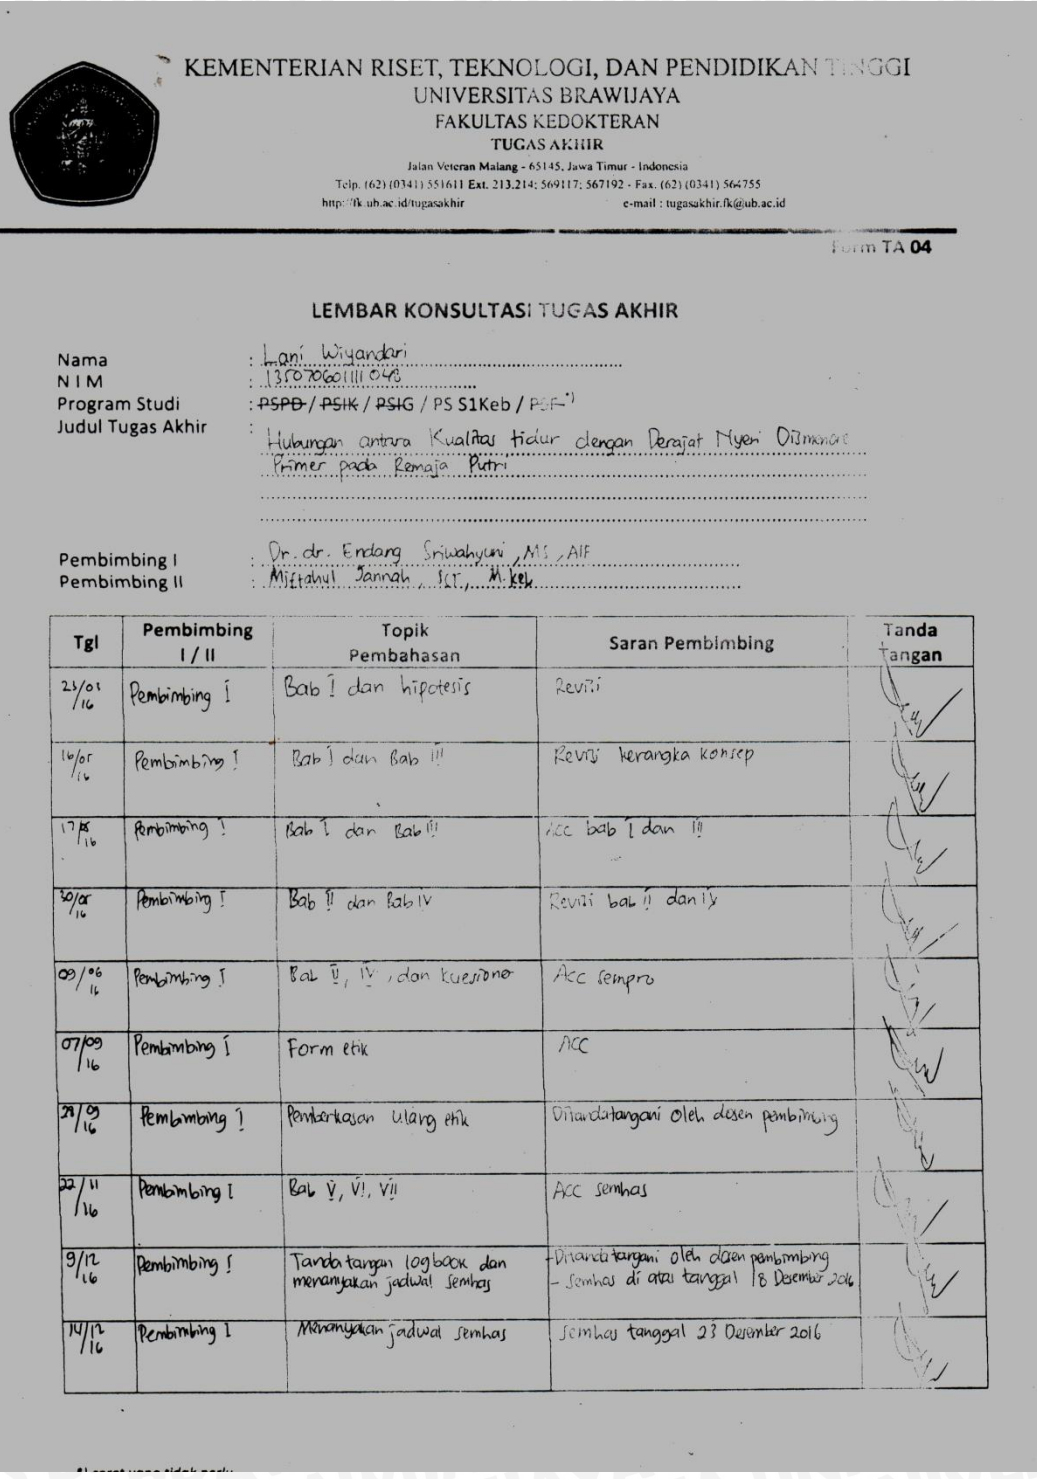 KEMENTERIAN RISET, TEKNOLOGI, DAN PENDIDIKAN TINGGI
UNIVERSITAS BRAWIJAYA
FAKULTAS KEDOKTERAN
TUGAS AKHIR
Jalan Veteran Malang - 65145, Jawa Timur - Indonesia
Telp. (62) (0341) 551611 Ext. 213,214; 569117; 567192 - Fax. (62) (0341) 564755
http://fk.ub.ac.id/tugasakhir e-mail : tugasakhir.fk@ub.ac.id
Form TA 04
LEMBAR KONSULTASI TUGAS AKHIR
Nama : Lani Wiyandari
NIM : 135070601111048
Program Studi : PSPD / PSIK / PSIG / PS S1Keb / PSF *)
Judul Tugas Akhir : Hubungan antara Kualitas tidur dengan Derajat Nyeri Dismenore
Primer pada Remaja Putri
Pembimbing I : Dr. dr. Endang Sriwahyuni, MS, AIF
Pembimbing II : Miftahul Jannah, SST, M.Keb
Tgl Pembimbing I / II Topik Pembahasan Saran Pembimbing Tanda Tangan
Pembimbing I Bab I dan hipotesis Revisi
16/05 16 Pembimbing I Bab I dan Bab III Revisi kerangka konsep
17/05 16 Pembimbing I Bab I dan Bab III Acc bab I dan III
30/05 16 Pembimbing I Bab II dan Bab IV Revisi bab II dan IV
09/06 16 Pembimbing I Bab II, IV, dan kuesioner Acc sempro
07/09 16 Pembimbing I Form etik ACC
28/09 16 Pembimbing I Pemberkasan ulang etik Ditandatangani oleh dosen pembimbing
22/11 16 Pembimbing I Bab V, VI, VII Acc semhas
9/12 16 Pembimbing I Tanda tangan logbook dan - Ditandatangani oleh dosen pembimbing
menanyakan jadwal semhas - Semhas di atas tanggal 18 Desember 2016
14/12 16 Pembimbing I Menanyakan jadwal semhas Semhas tanggal 23 Desember 2016